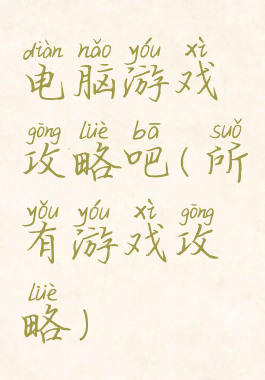 diàn nǎo yóu xì
电脑游戏
gōng lüè bā suǒ
攻略吧(所
yǒu yóu xì gōng
有游戏攻
lüè
略)